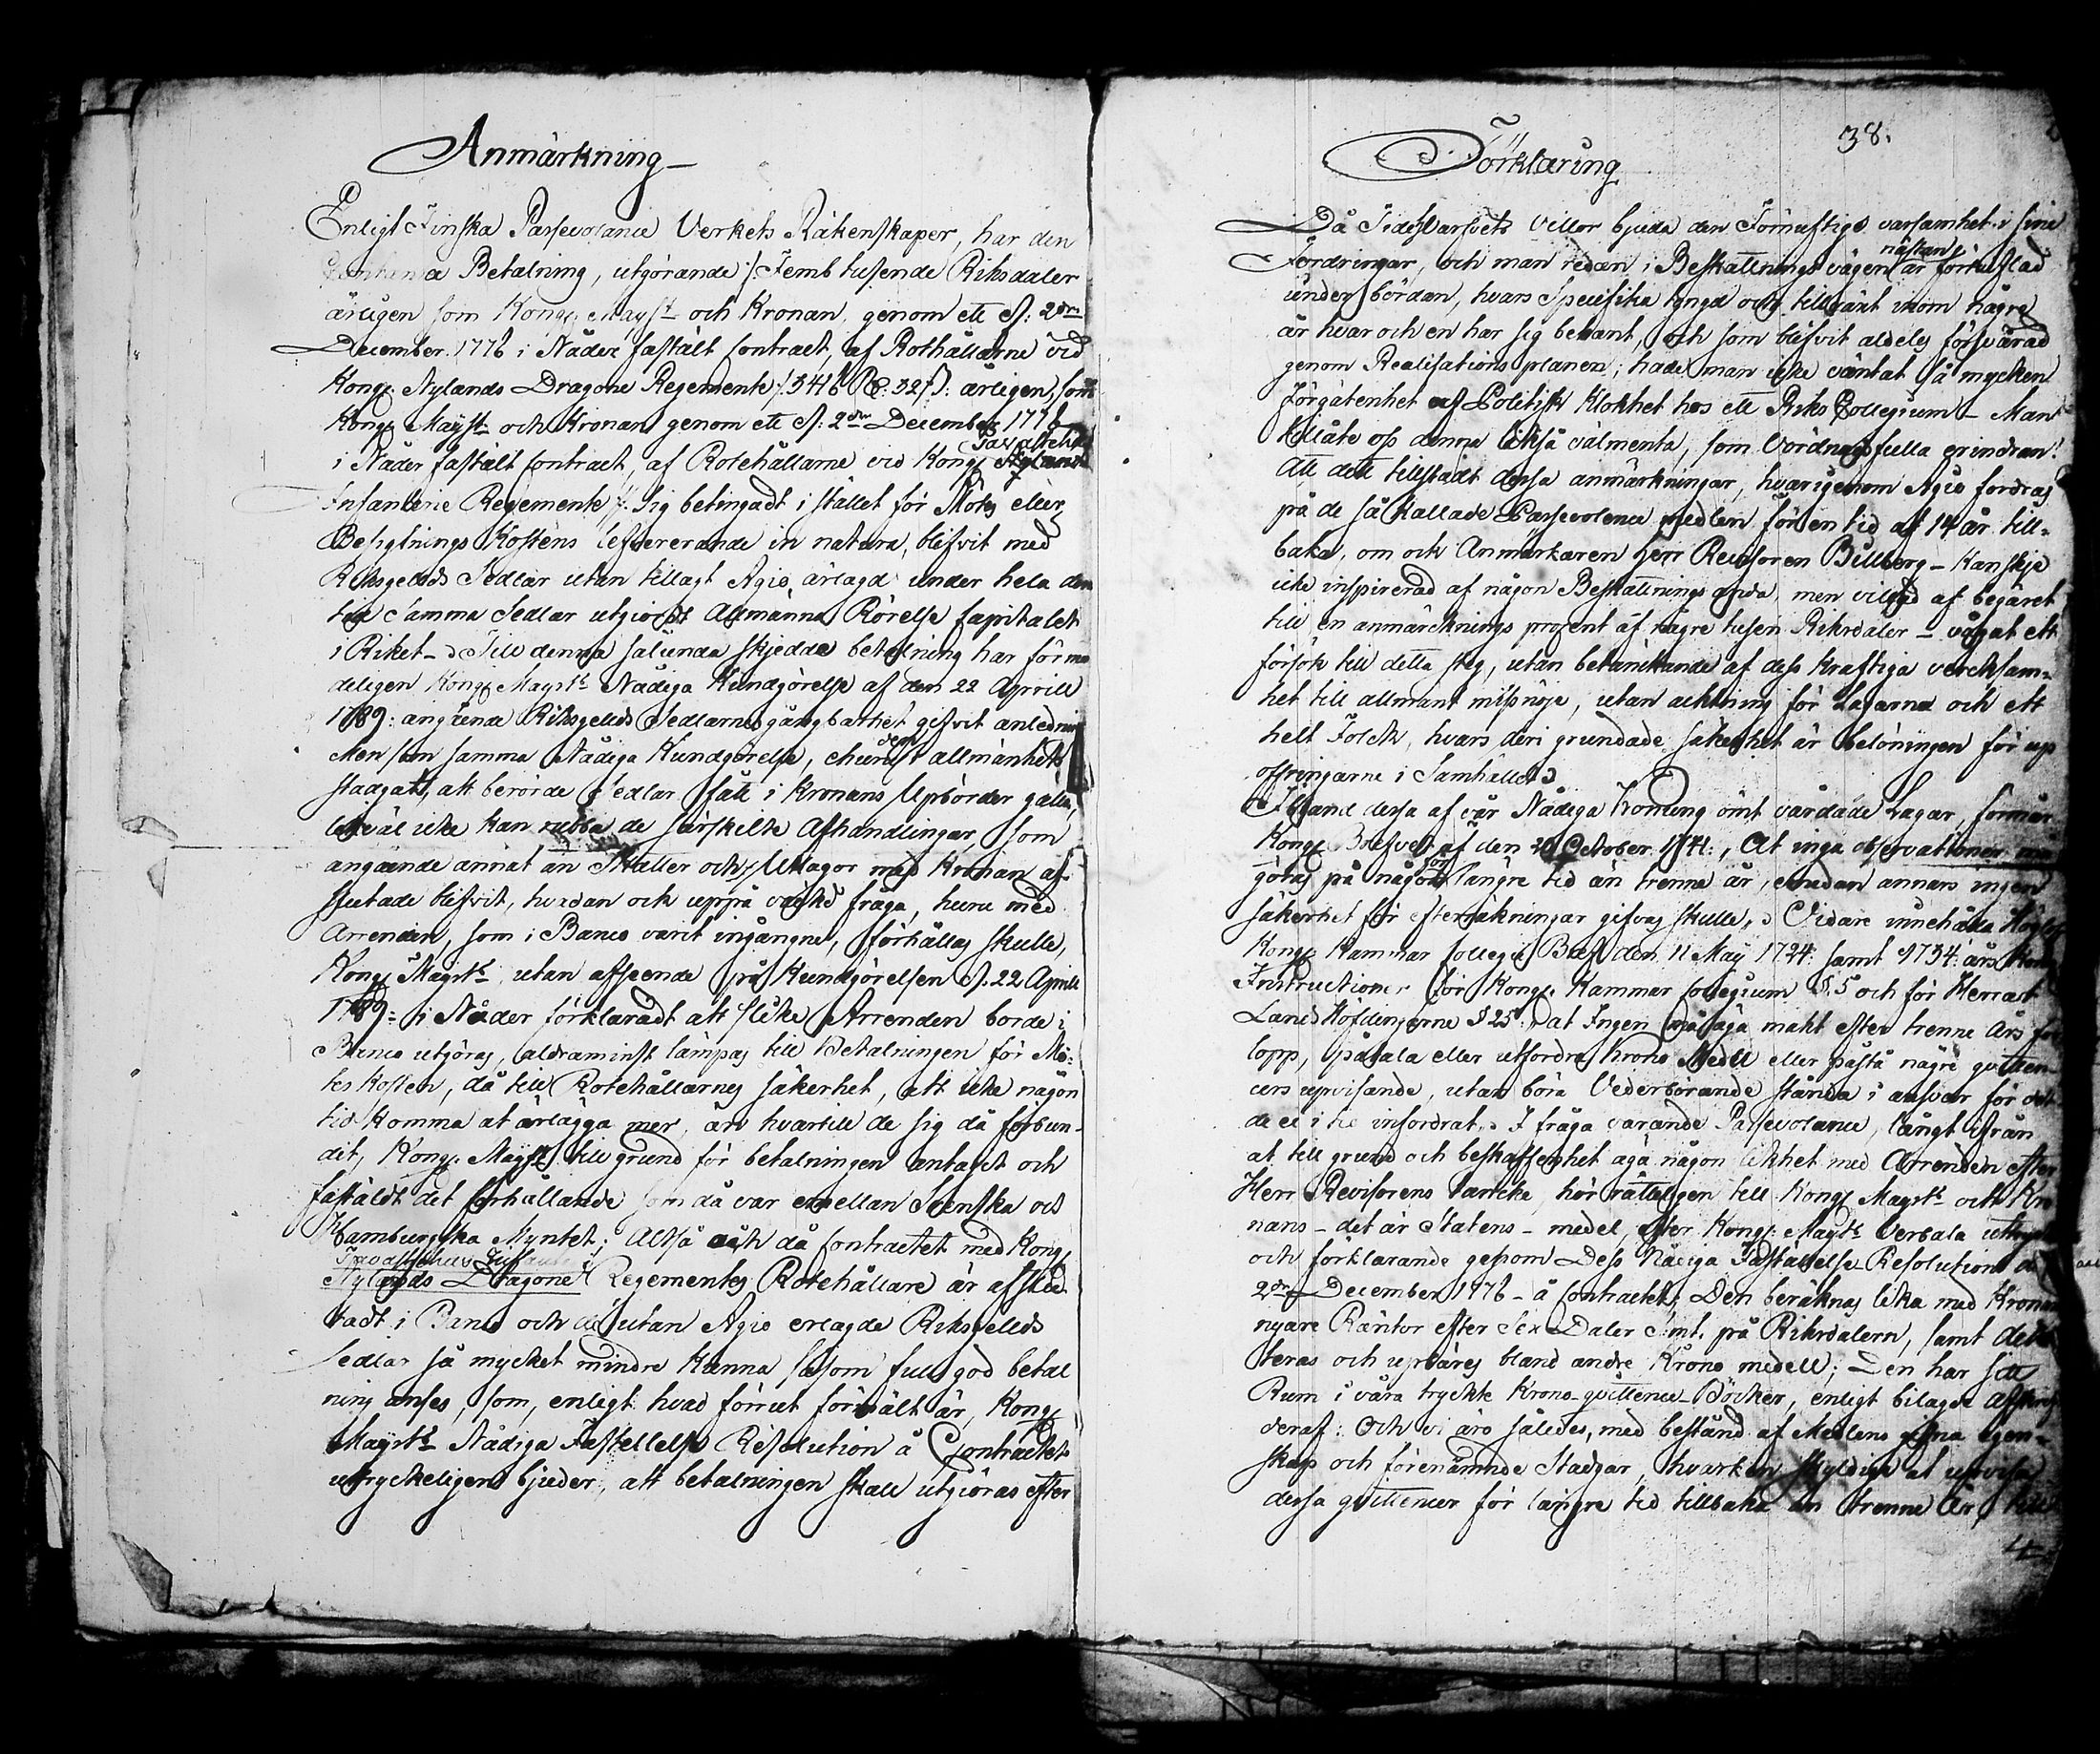 Anmärkning
Enligt Finska Passevolance Verkets Räkenskaper, har den
Betalning, utgörande /: Femb tusende Riksdaler
årligen som Kongl Mayst och Kronan, genom ett d: 2dra
December 1776 i Nåder fastält Contract, af Rothållarne vid
Kongl. Nylands Dragone Regemente /: 3416 Rd: 32 s: årligen, som
Kongl Mayst och Kronan genom ett d: 2dra December 1776
i Nåder fastält Contract, af Rotehållarne vid Kongl Tavastehus
Infanterie Regemente :/ Sig betingadt i stället för Mötes eller
Besigtnings Kostens lefvererande in natura, blifvit med
Riksgelds Sedlar utan tillagt Agio, ärlagd under hela den
tid Samma Sedlar utgiordt Allmänna Rörelse Capitalet
i Riket - Till denna sålunda skjedda betalning har förmo
deligen Kongl Maysts Nådiga Kundgörelse af den 22 Aprill
1789: angående Riksgelds Sedlarnes gångbarhet gifvit anledning
Men som samma Nådiga Kundgörelse, ehuru den i allmänhet
stadgat, att berörde Sedlar skåle i Kronans Upbörder gälla,
likväl icke kan rubba de särskilte Afhandlingar, som
angående annat än Skatter och Utlagor med Kronan af-
slutade blifvit, hvordan och uppå väckt fråga, huru med
Arrenden, som i Banco varit ingångne, förhållas skulle,
Kongl Mayst, utan afseende på Kundgörelsen d. 22 Aprill
1789: i Nåder förklaradt att slike Arrenden borde i
Banco utgöras, aldraminst lämpas till Betalningen för Mö-
tes Kosten, då till Rotehållarnes säkerhet, att icke någon
tid komma at ärlägga mer, än hvartill de sig då förbun-
dit, Kongl. Mayst till grund för betalningen antagit och
faställdt det förhållande som då var emellan Svenska och
Hamburgska Myntet; Altså och då Contractet med Kongl
Tavastehus Infanterie
Nylands Dragone Regementes Rotehållare är afslu
tadt i Banco och då utan Agio erlagde Riksgelds
Sedlar så mycket mindre kunna såsom full god betal
ning anses, som, enligt hvad förrut förmält är, Kongl
Maysts Nådiga Fastellelse Resolution å Contractet
uttryckeligen bjuder, att betalningen skall utgiöras efter
38.
Förklaring
Då Tidehvarfvets villor bjuda den Förnuftige varsamhet i sine
Fordringar, och man redan i Beskattnings vägen nästan är förkuflad
under bördan, hvars Specifika tyngd och tillväxt inom några
år hvar och en har sig bekant, och som blifvit aldeles försvårad
genom Realisations planen; hade man icke väntat så mycken
Förgätenhet af Politisk Klokhet hos ett Riks Collegium - Man
tillåte oss denna likså välmenta, som vördnadsfulla erindran!
Att dett tillstadt dessa anmärkningar, hvarigenom Agio fordras
på de så kallade Passevolence medlen för en tid af 14 år till-
baka, om och Anmärkaren Herr Revisoren Billberg - Kanskje
icke inspirerad af någon Beskattnings anda, men villad af begäret
till en anmärcknings procent af några tusen Riksdaler - vågat ett
försök till detta steg, utan betänkande af dess kraftiga vercksam-
het till allmänt missnöje, utan acktning för Lagarna och ett
helt Folck, hvars deri grundade säkerhet är belöningen för up
offringarne i Samhället.
Ibland dessa af vår Nådiga Konung ömt vårdade Lagar, förmår
Kongl Brefvet af den 20 October 1741:, At inga observationer må
göras på någon längre tid än trenne år, emedan annars ingen
säkerhet för efterräkningar gifvas skulle, Vidare innehålla Högl
Kongl. Kammar Collegii Bref den 11 May 1724: samt 1734: års Kongl
Instructioner för Kongl. Kammar Collegium §. 5 och för Herrar
Lands Höfdingerne § 25: at Ingen må äga makt efter trenne Års för
lopp, påtala eller utfordra Krono Medel eller påstå några quitten-
cers upvisande, utan böra Vederbörande stånda i ansvar för det
de ei i tid infordrat. I fråga varande Passevolance, långt ifrån
at till grund och beskaffenhet äga någon likhet med Arrenden efter
Herr Revisorens tancke, hör rätteligen till Kongl Maysts och Kro
nans - det är Statens - medel, efter Kongl. Maysts Verbala uttryck
och förklarande genom Dess Nådiga Fastställelse Resolution
2dra December 1776 - å Contractet; Den beräknas lika med Kronans
nyare Räntor efter Sex Daler Smt. på Riksdalern, samt debi
teras och upbäres bland andre Krono medell; Den har sitt
Rum i våra tryckte Krono-quittence Böcker, enligt bilagde Afskrift
deraf: Och vi äro således, med bestånd af Medlens egen-
skap och förenämnde Stadgar, hvarken skyldige at upvisa
dessa quittencer för längre tid tillbaka än trenne År, till